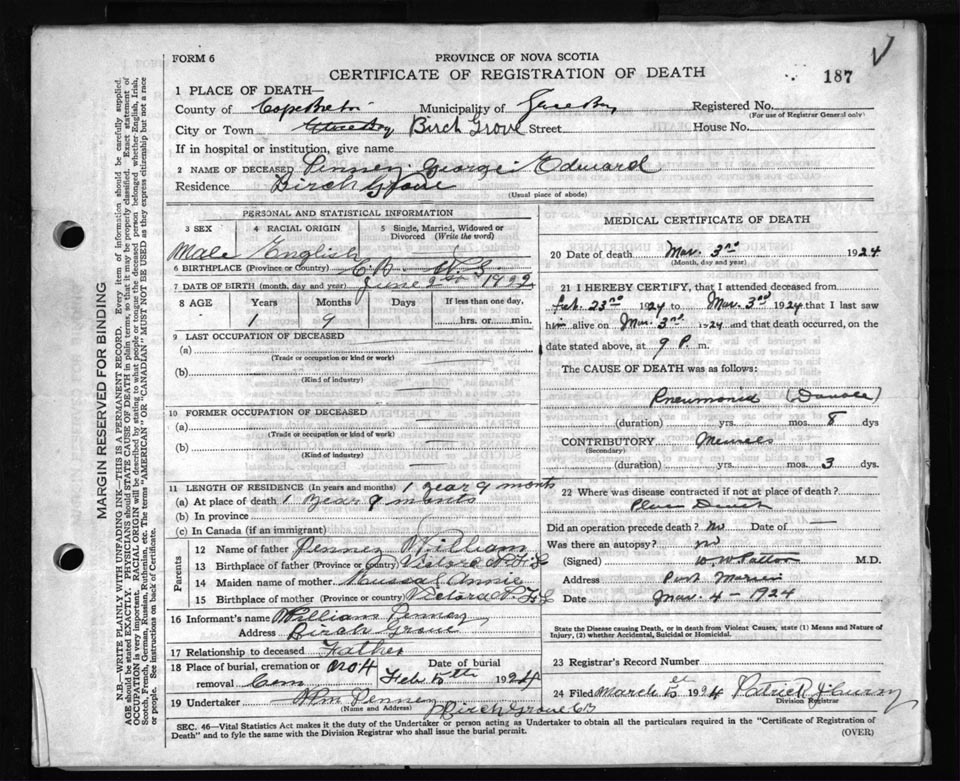 FORM 6
PROVINCE OF NOVA SCOTIA
CERTIFICATE OF REGISTRATION OF DEATH
187
1 PLACE OF DEATH—
County of Cape Breton Municipality of Registered No.
(For use of Registrar General only)
City or Town Birch Grove Street House No.
If in hospital or institution, give name
2 NAME OF DECEASED Penney George Edward
Residence Birch Grove
(Usual place of abode)
PERSONAL AND STATISTICAL INFORMATION
3 SEX 4 RACIAL ORIGIN 5 Single, Married, Widowed or Divorced (Write the word)
Male English
6 BIRTHPLACE (Province or Country) C.B. N.S.
7 DATE OF BIRTH (month, day and year) June 2nd 1922
8 AGE Years Months Days If less than one day,
1 9 hrs. or min.
9 LAST OCCUPATION OF DECEASED
(a)
(Trade or occupation or kind or work)
(b)
(Kind of industry)
10 FORMER OCCUPATION OF DECEASED
(a)
(Trade or occupation or kind of work)
(b)
(Kind of industry)
11 LENGTH OF RESIDENCE (In years and months) 1 year 9 months
(a) At place of death 1 year 9 months
(b) In province
(c) In Canada (if an immigrant)
Parents
12 Name of father Penney William
13 Birthplace of father (Province or country)
14 Maiden name of mother Annie
15 Birthplace of mother (Province or country)
16 Informant's name William Penney
Address Birch Grove
17 Relationship to deceased Father
18 Place of burial, cremation or removal Cem
Date of burial Feb 5th 1924
19 Undertaker Wm Penney
(Name and Address) Birch Grove CB
MEDICAL CERTIFICATE OF DEATH
20 Date of death Mar. 3rd 1924
(Month, day and year)
21 I HEREBY CERTIFY, that I attended deceased from
Feb. 23rd 1924 to Mar. 3rd 1924 that I last saw
him alive on Mar. 3rd 1924 and that death occurred, on the
date stated above, at 9 P. m.
The CAUSE OF DEATH was as follows:
Pneumonia
(duration) yrs. mos. 8 dys
CONTRIBUTORY Measles
(Secondary)
(duration) yrs. mos. 3 dys.
22 Where was disease contracted if not at place of death?
Place Death
Did an operation precede death? No Date of —
Was there an autopsy? no
(Signed) W W Patton M.D.
Address Port Morien
Date Mar. 4 – 1924
State the Disease causing Death, or in death from Violent Causes, state (1) Means and Nature of
Injury, (2) whether Accidental, Suicidal or Homicidal.
23 Registrar's Record Number
24 Filed March 5 1924 Patrick
Division Registrar
SEC. 46—Vital Statistics Act makes it the duty of the Undertaker or person acting as Undertaker to obtain all the particulars required in the "Certificate of Registration of
Death" and to fyle the same with the Division Registrar who shall issue the burial permit.
(OVER)
MARGIN RESERVED FOR BINDING
N.B.—WRITE PLAINLY WITH UNFADING INK—THIS IS A PERMANENT RECORD. Every item of information should be carefully supplied.
AGE should be stated EXACTLY. PHYSICIANS should STATE CAUSE OF DEATH in plain terms, so that it may be properly classified. Exact statement of
OCCUPATION is very important. RACIAL ORIGIN will be described by stating to what people or tongue the deceased person belonged whether English, Irish,
Scotch, French, German, Russian, Ruthenian, etc. The terms "AMERICAN" OR "CANADIAN" MUST NOT BE USED as they express citizenship but not a race
or people. See instructions on back of Certificate.